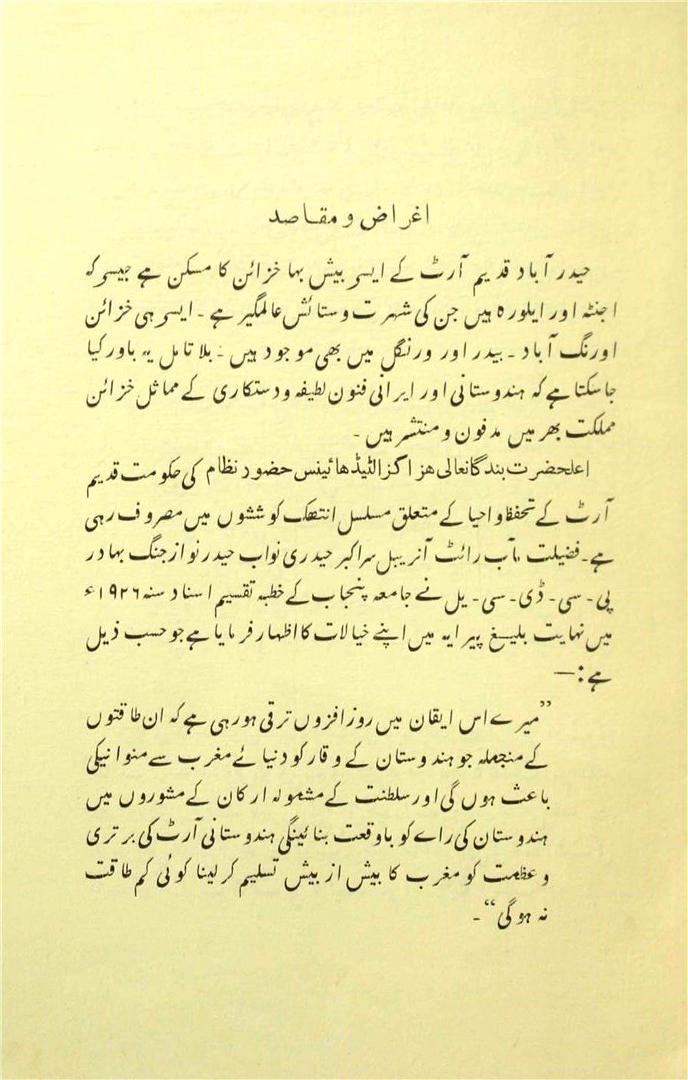 اغراض و مقاصد
حیدر آباد قدیم آرٹ کے ایسے بیش بہا خزائن کا مسکن ہے جیسے کہ
اجنٹہ اور ایلورہ ہیں جن کی شہرت و ستائش عالمگیر ہے ۔ ایسے ہی خزائن
اورنگ آباد ۔ بیدر اور ورنگل میں بھی موجود ہیں ۔ بلا تامل یہ باور کیا
جاسکتا ہے کہ ہندوستانی اور ایرانی فنون لطیفہ و دستکاری کے مماثل خزائن
مملکت بھر میں مدفون و منتشر ہیں ۔
اعلحضرت بندگانعالی ہز اگزالٹیڈ ھائینس حضور نظام کی حکومت قدیم
آرٹ کے تحفظ و احیا کے متعلق مسلسل انتھک کوششوں میں مصروف رہی
ہے۔ فضیلت مآب رائٹ آنریبل سر اکبر حیدری نواب حیدر نواز جنگ بہادر
پی ۔ سی ۔ ڈی ۔ سی ۔ یل نے جامعہ پنجاب کے خطبہ تقسیم اسناد سنہ ۱۹۲۶ء
میں نہایت بلیغ پیرایہ میں اپنے خیالات کا اظہار فرمایا ہے جو حسب ذیل
ہے :—
”میرے اس ایقان میں روز افزوں ترقی ہورہی ہے کہ ان طاقتوں
کے منجملہ جو ہندوستان کے وقار کو دنیائے مغرب سے منوانیکی
باعث ہوں گی اور سلطنت کے مشمولہ ارکان کے مشوروں میں
ہندوستان کی رائے کو باوقعت بنائینگی ہندوستانی آرٹ کی برتری
و عظمت کو مغرب کا بیش از بیش تسلیم کرلینا کوئی کم طاقت
نہ ہوگی“ ۔